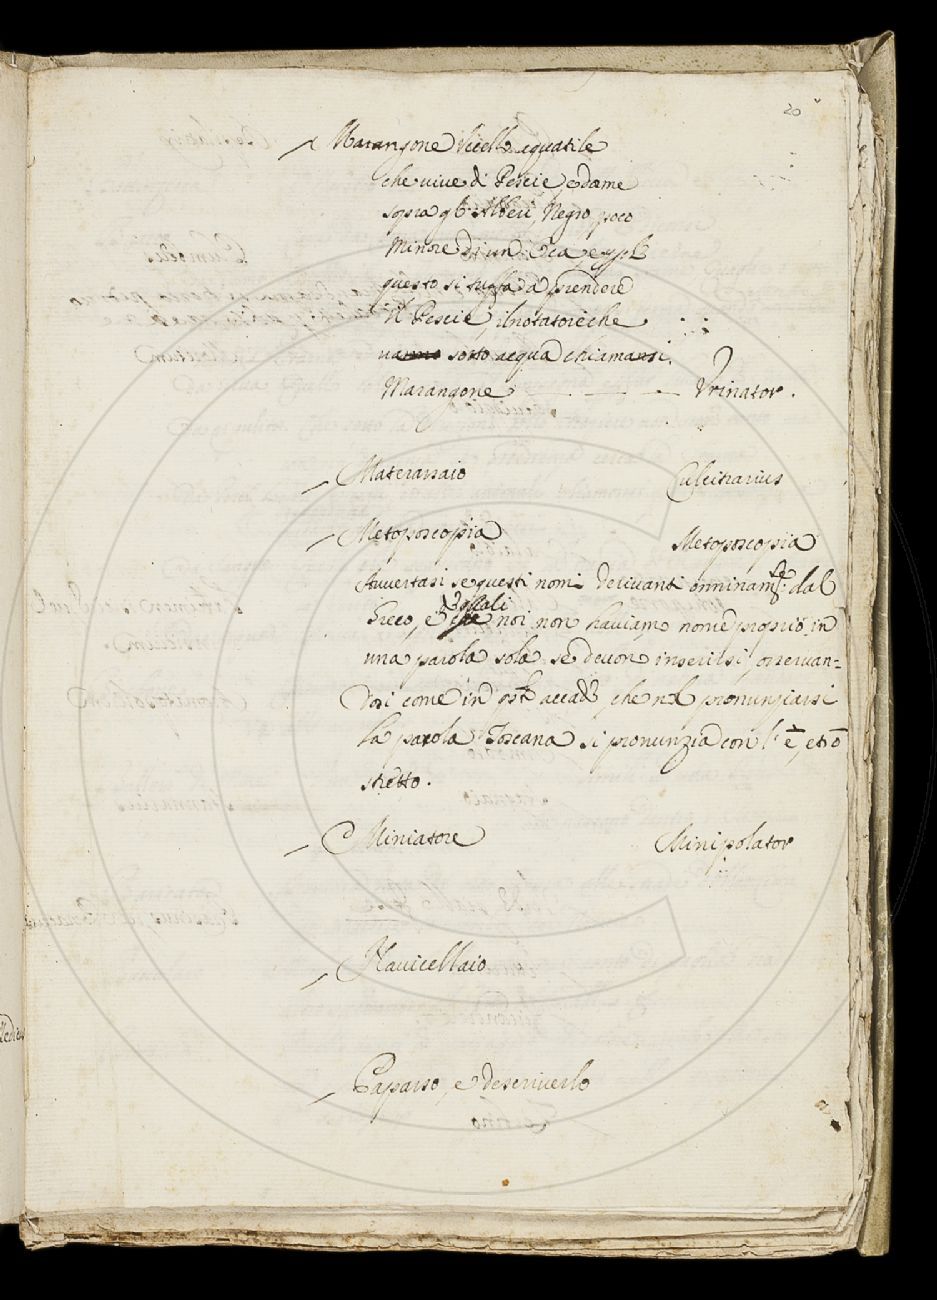 20
Marangone Vcello aquatile
che viue di Pescie, e dorme
sopra gl'Alberi, Negro poco
Minore di un Oca e
questo si tuffa a prendere
il Pescie, i notatori che
uanno sotto acqua chiamansi
Marangone — — — Vrinator.
Materassaio Culcitrarius
Metoposcopia Metoposcopia
Auuertasi se questi nomi deriuanti onninamte. dal
Greco, e de quali noi non habiamo nome proprio in
una parola sola se deuon inserirsi, osseruan=
dosi come in qsto accade, che nel pronunziarsi
la parola Toscana si pronunzia con l'ē, et ō
stretto.
Miniatore Minipolator
Nauicellaio
Paparso, e descriuerlo